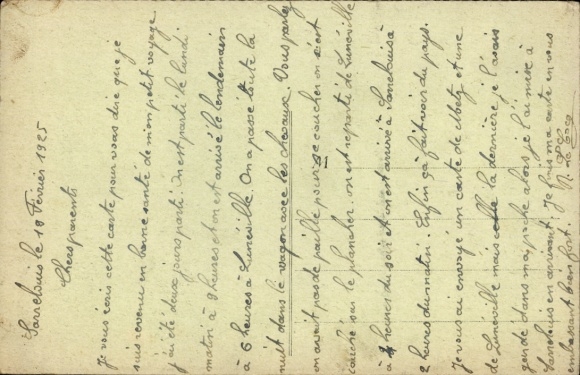 Sarrelouis le 18 Février 1925
Chers parents
Je vous écris cette carte pour vous dire que je
suis revenu en bonne santé de mon petit voyage
j'ai été deux jours parti. On est parti le lundi
matin à 9 heures et on est arrivé le lendemain
à 6 heures à Lunéville. On a passé toute la
nuit dans le wagon avec les chevaux. Vous parlez
on avait pas de paille pour se coucher on s'est
couché sur le plancher. on est reparti de Lunéville
à heures du soir et on est arrivé à Sarrelouis à
2 heures du matin. Enfin ça fait voir du pays.
Je vous ai envoyé un carte de Metz et une
de Lunéville mais cette la dernière je l'avais
gardé dans ma poche alors je l'ai mise à
Sarrelouis en arrivant. Je finis ma carte en vous
embrassant bien fort.